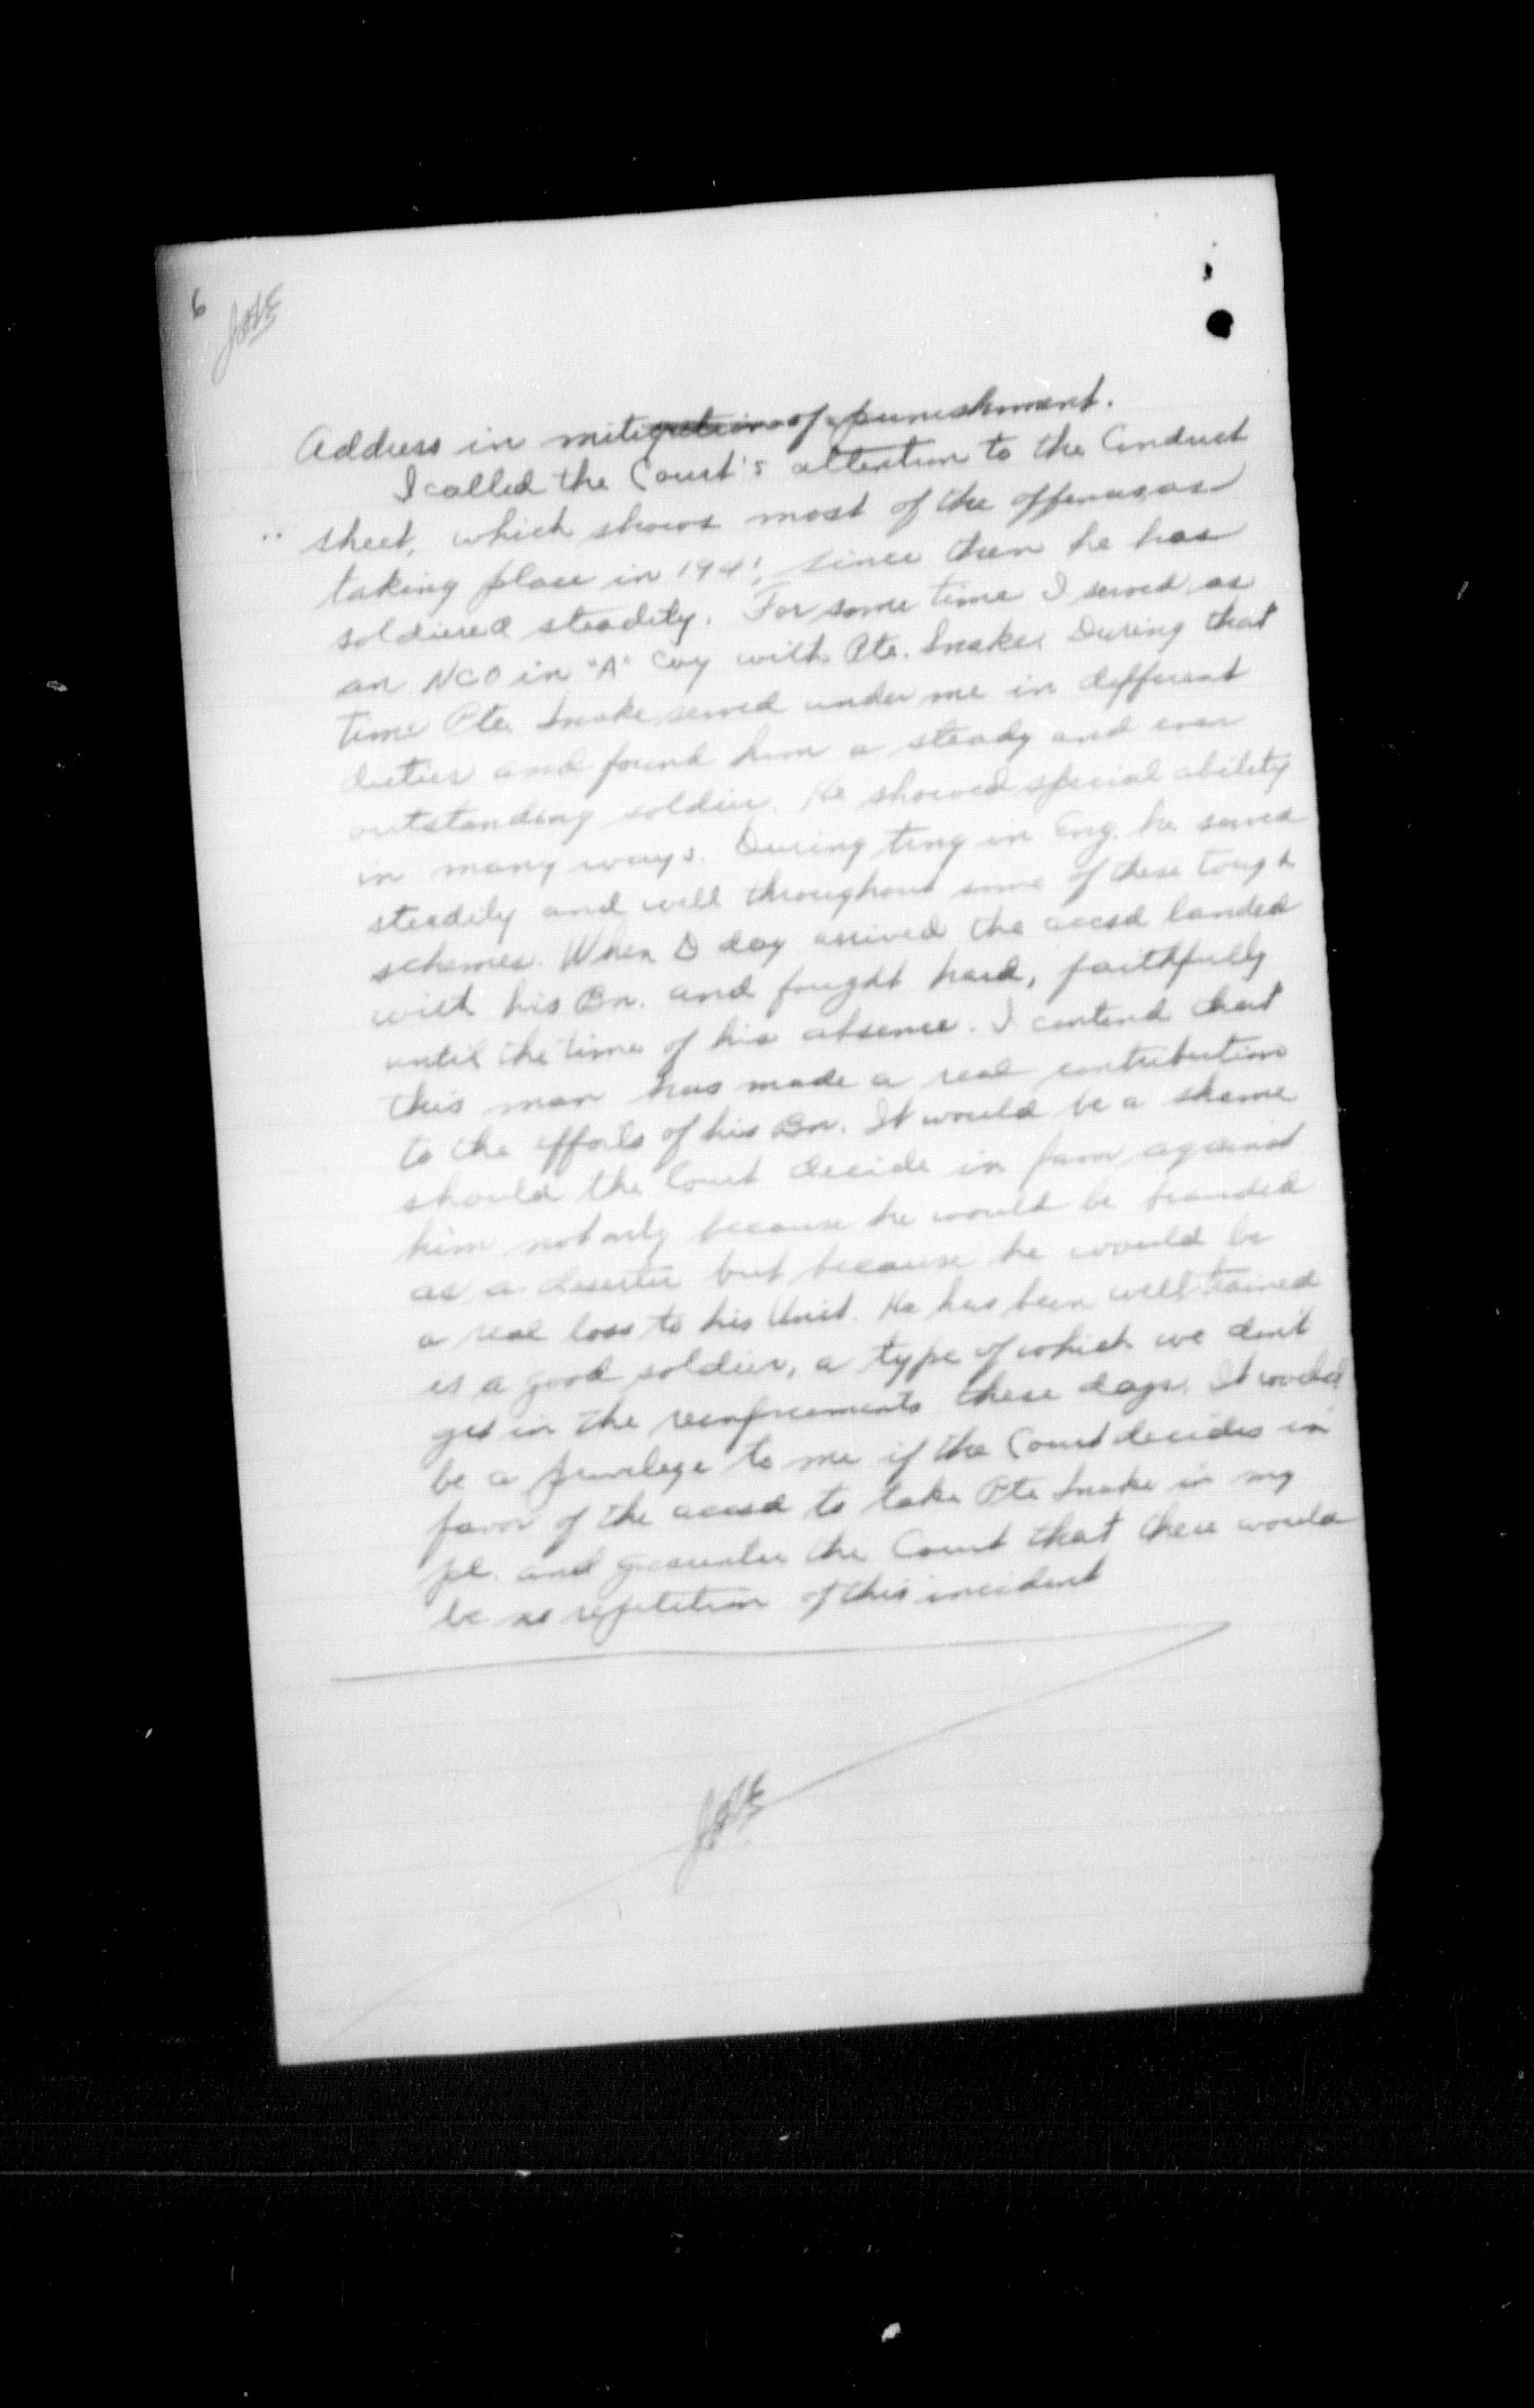 6
Address in mitigation of punishment.
I called the Court's attention to the Conduct
sheet, which shows most of the offenses as
taking place in 1941, since then he has
soldiered steadily. For some time I served as
an NCO in "A" Coy with Pte. Snake. During that
time Pte Snake served under me in different
duties and found him a steady and even
outstanding soldier. He showed special ability
in many ways. During tng in Eng. he served
steadily and well throughout some of these tough
schemes. When D day arrived the accsd landed
with his Bn. and fought hard, faithfully
until the time of his absence. I contend that
this man has made a real contribution
to the efforts of his Bn. It would be a shame
should the Court decide in favor against
him not only because he would be branded
as a deserter but because he would be
a real loss to his Unit. He has been well trained
is a good soldier, a type of which we don't
get in the reinforcements these days. It would
be a privilege to me if the Court decides in
favor of the accsd to take Pte Snake in my
pl. and guarantee the Court that there would
be no repetition of this incident